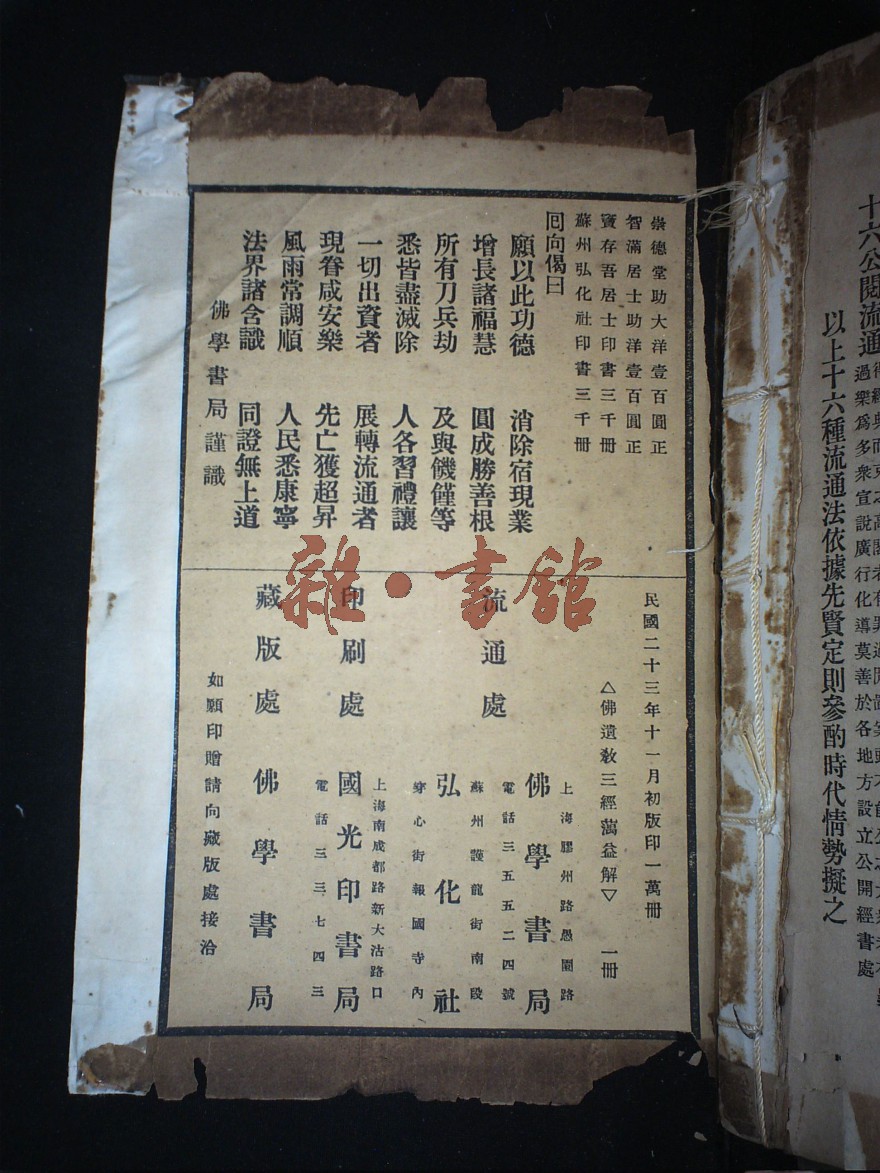 十六公閱流通
過樂爲多衆宣說廣行化導莫善於各地方設立公開經書處
以上十六種流通法依據先賢定則參酌時代情勢擬之
崇德堂助大洋壹百圓正
智滿居士助洋壹百圓正
竇存吾居士印書三千冊
蘇州弘化社印書三千冊
囘向偈曰
願以此功德 消除宿現業
增長諸福慧 圓成勝善根
所有刀兵劫 及與饑饉等
悉皆盡滅除 人各習禮讓
一切出資者 展轉流通者
現眷咸安樂 先亡獲超昇
風雨常調順 人民悉康寧
法界諸含識 同證無上道
佛學書局謹識
民國二十三年十一月初版印一萬冊
△佛遺敎三經蕅益解▽ 一冊
流通處
上海膠州路愚園路
佛學書局
電話三五五二四號
蘇州護龍街南段
弘化社
穿心街報國寺內
印刷處
上海南成都路新大沽路口
國光印書局
電話三三七四三
藏版處 佛學書局
如願印贈請向藏版處接洽
雜·書館